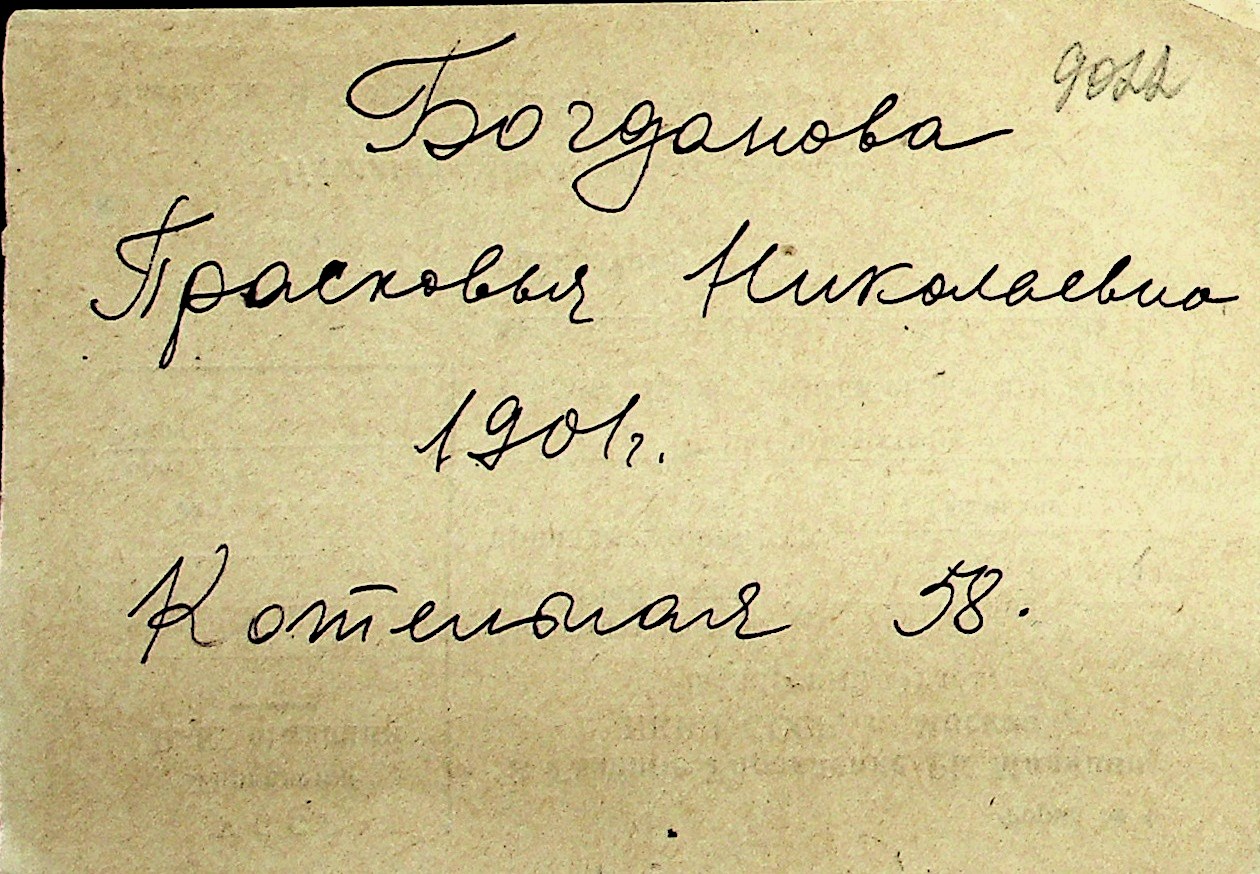 9022
Богданова
Прасковья Николаевна
1901г.
Котельная 58.